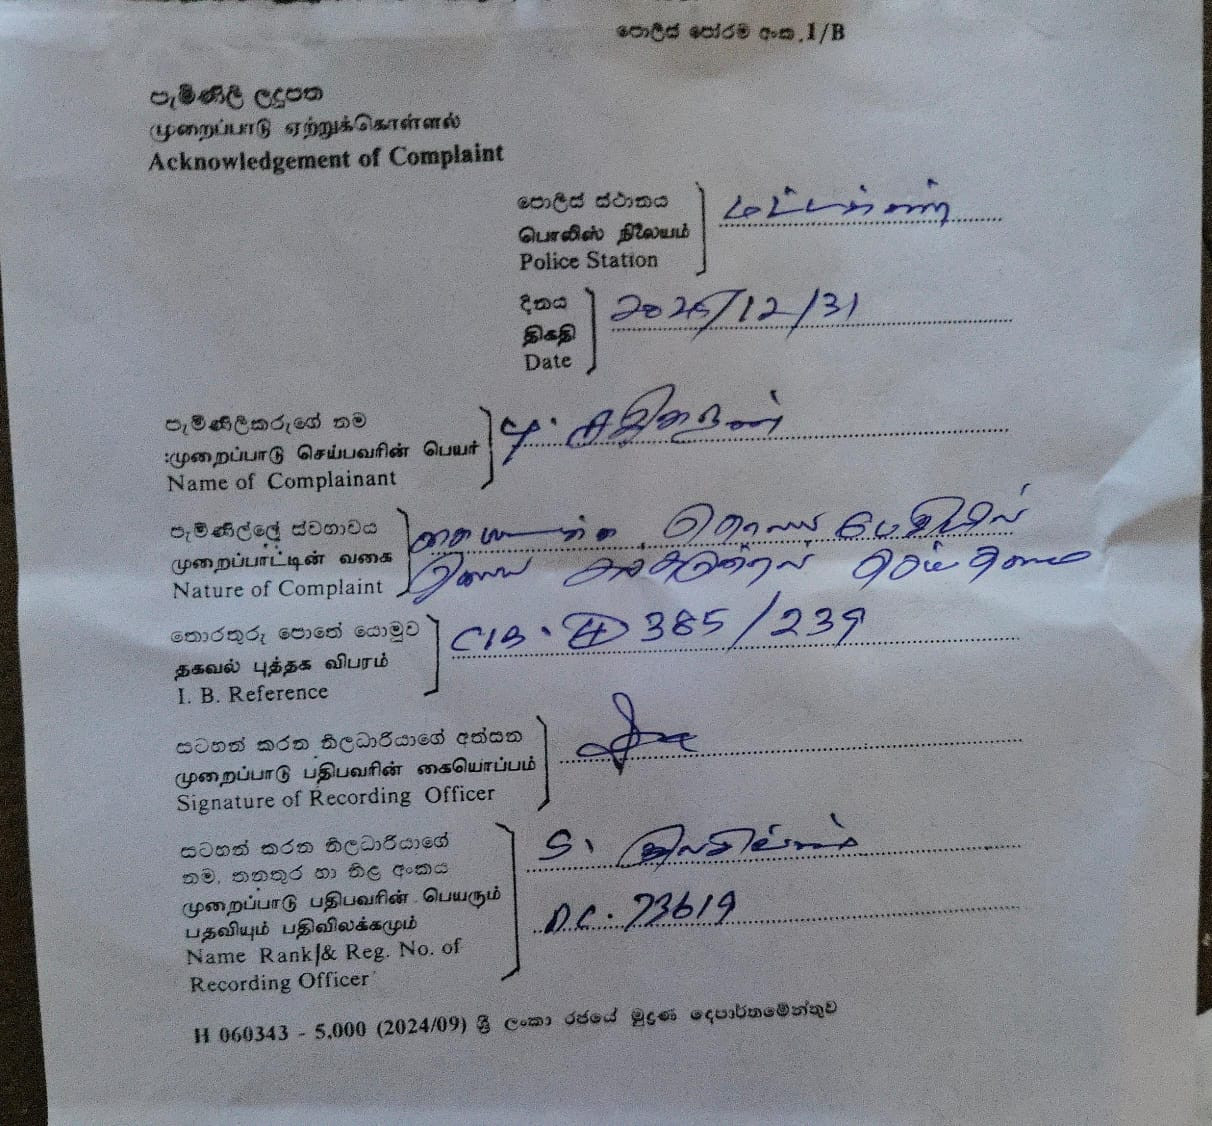 පොලිස් පෝරම අංක.1/B
පැමිණිලි ලදුපත
முறைப்பாடு ஏற்றுக்கொள்ளல்
Acknowledgement of Complaint
පොලිස් ස්ථානය
பொலிஸ் நிலையம்
Police Station
දිනය
திகதி
Date
2025/12/31
පැමිණිලිකරුගේ නම
முறைப்பாடு செய்பவரின் பெயர்
Name of Complainant
පැමිණිල්ලේ ස්වභාවය
முறைப்பாட்டின் வகை
Nature of Complaint
තොරතුරු පොතේ යොමුව
தகவல் புத்தக விபரம்
I. B. Reference
CIB. 385/239
සටහන් කරන නිලධාරියාගේ අත්සන
முறைப்பாடு பதிபவரின் கையொப்பம்
Signature of Recording Officer
සටහන් කරන නිලධාරියාගේ
නම, තනතුර හා නිළ අංකය
முறைப்பாடு பதிபவரின் பெயரும்
பதவியும் பதிவிலக்கமும்
Name Rank & Reg. No. of
Recording Officer
S.
D.C. 73619
H 060343 - 5,000 (2024/09) ශ්‍රී ලංකා රජයේ මුද්‍රණ දෙපාර්තමේන්තුව